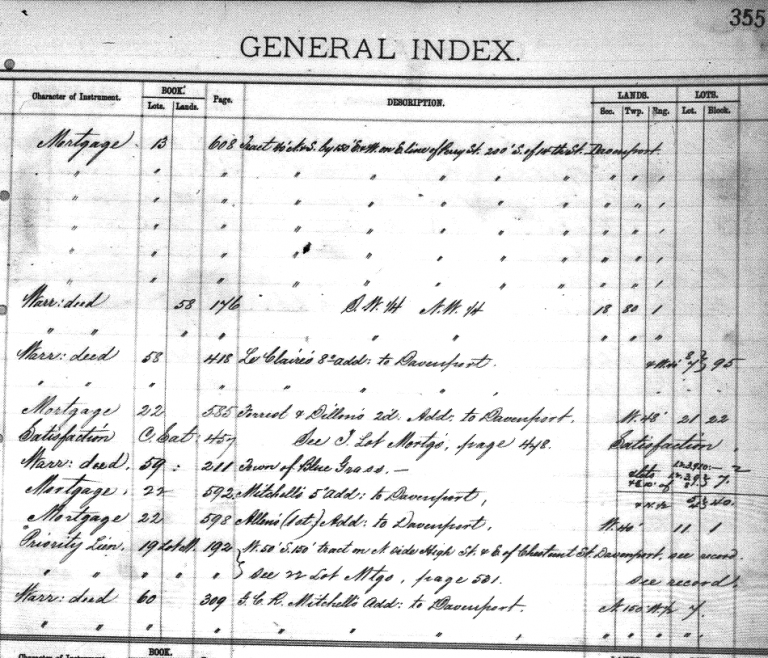 355
GENERAL INDEX.
Character of Instrument. BOOK. Page. DESCRIPTION. LANDS. LOTS.
Lots. Lands. Sec. Twp. Rng. Lot. Block.
Mortgage 13 608 Tract 80' N & S. by 150' E & W. on E line of Perry St. 200' S. of 14th St. Davenport
" " " " " " " " " "
" " " " " " " " " "
" " " " " " " " " "
" " " " " " " " " "
" " " " " " " " " "
Warr: deed 58 176 S. W. 1/4 N. W. 1/4 18 80 1
" " " " " " " " "
Warr: deed 58 418 Le Claire's 8th add: to Davenport. 7 95
" " " " " " "
Mortgage 22 585 Forrest & Dillon's 2d. Add. to Davenport. W. 48' 21 22
Satisfaction C. Eat: 457 See T. Lot Mortgs, page 448. Satisfaction
Warr: deed. 59 : 211 Town of Blue Grass. — 7.
Mortgage. 22 592 Mitchell's 5th add: to Davenport, 40.
Mortgage 22 598 Allen's (1st) Add: to Davenport. W. 40' 11 1
Priority Lien. 19 Lot M. 192 W. 50' S. 150' tract on N side High St. & E. of Chestnut St. Davenport. see record.
" " " " " See 22 Lot Mtgs, page 501. See record
Warr: deed 60 309 G. C. R. Mitchell's Add: to Davenport. N. 150' W 1/2 7.
" " " " " " " " "
Character of Instrument. BOOK. LANDS. LOTS.